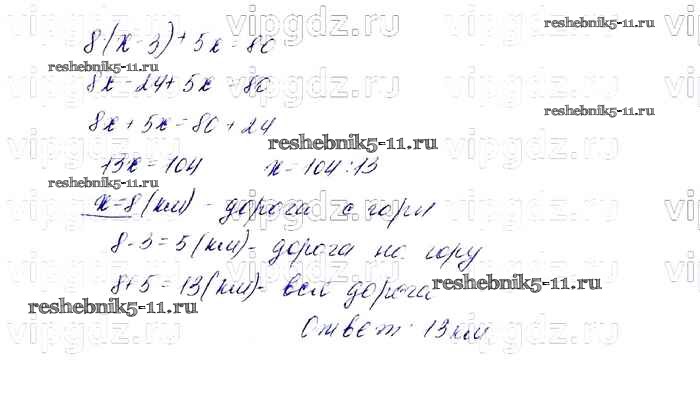 reshebnik5-11.ru
8(x-3)+5x=80
reshebnik5-11.ru
8x-24+5x=80
reshebnik5-11.ru
8x+5x=80+24
reshebnik5-11.ru
13x=104 x=104:13
reshebnik5-11.ru
x=8(км) - дорога с горы
8-3=5(км)- дорога на гору
8+5=13(км)- вся дорога
reshebnik5-11.ru
reshebnik5-11.ru
Ответ: 13 км
vipgdz.ru vipgdz.ru vipgdz.ru